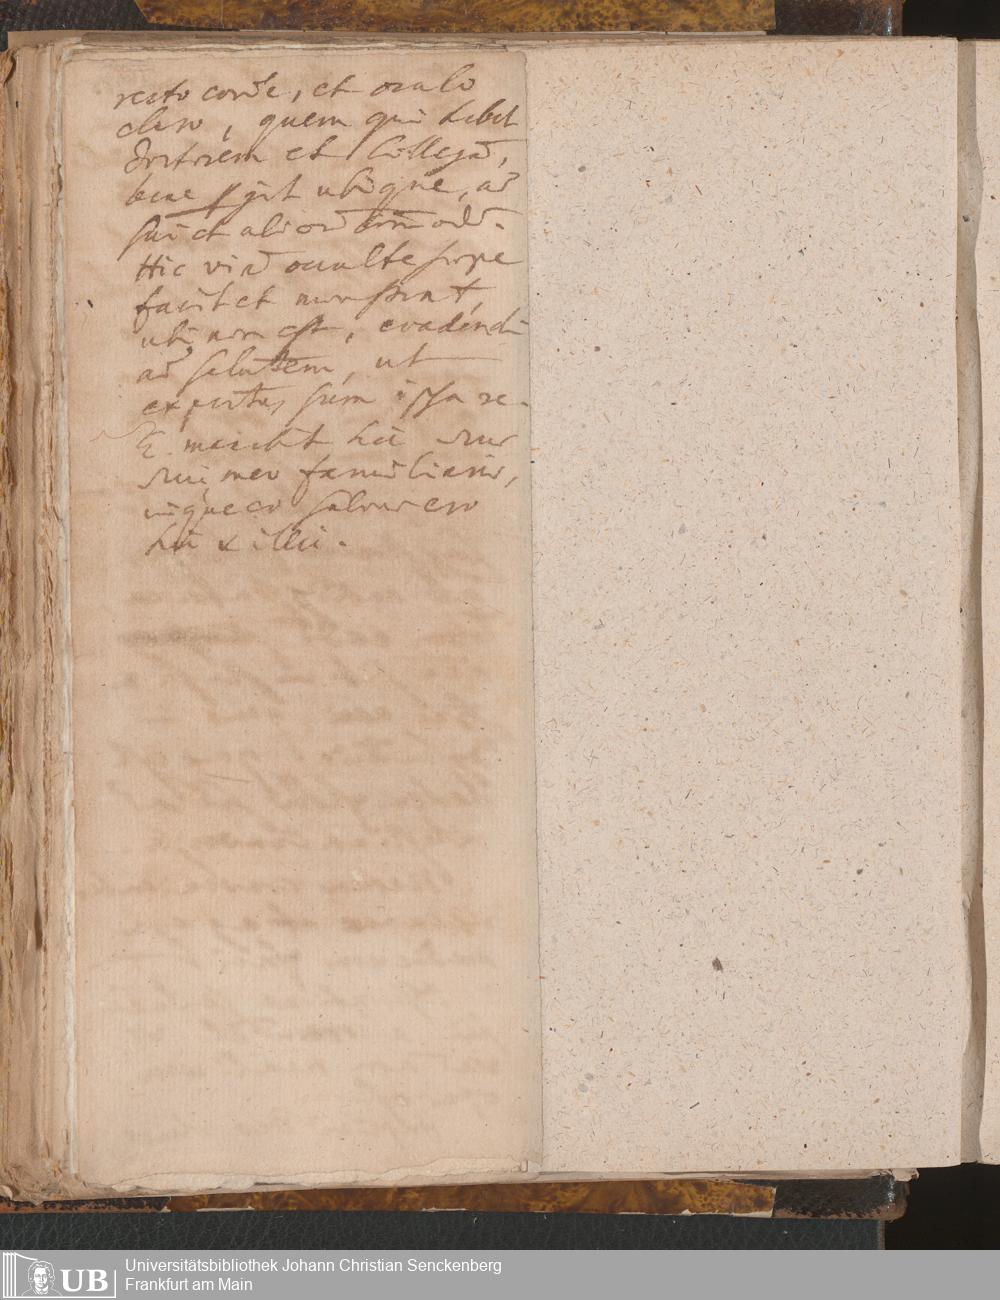 recto corde, et oculo
claro, quem qui habet
Doctorem et Collegã,
bene git ubique, ad
sui et alior õim
Hic viã occulte sæpe
facit et monstrat,
ubi non est, evadendi
ad salutem, ut
expertus sum ipsa re.
E. manebit hic
meo familiaris,
salvus ero
hic & illic.
Universitätsbibliothek Johann Christian Senckenberg
UB Frankfurt am Main